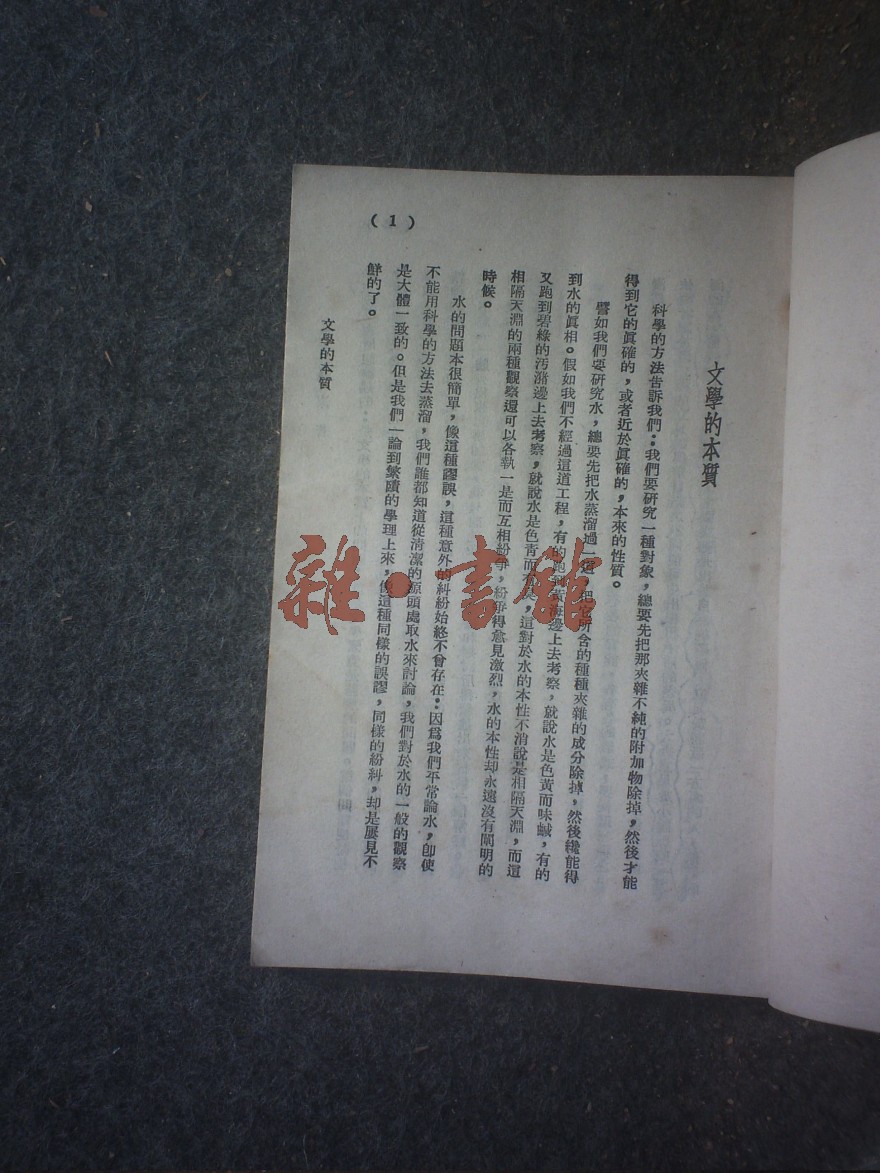 文學的本質
科學的方法告訴我們：我們要研究一種對象，總要先把那夾雜不純的附加物除掉，然後才能
得到它的眞確的，或者近於眞確的，本來的性質。
譬如我們要研究水，總要先把水蒸溜過一道，把它所含的種種夾雜的成分除掉，然後纔能得
到水的眞相。假如我們不經過這道工程，有的跑到黃海邊上去考察，就說水是色黃而味鹹，有的
又跑到碧綠的汚瀦邊上去考察，就說水是色靑而，這對於水的本性不消說是相隔天淵，而這
相隔天淵的兩種觀察還可以各執一是而互相紛爭，紛爭得愈見激烈，水的本性却永遠沒有闡明的
時候。
水的問題本很簡單，像這種謬誤，這種意外的糾紛始終不曾存在：因爲我們平常論水，卽使
不能用科學的方法去蒸溜，我們誰都知道從淸潔的源頭處取水來討論，我們對於水的一般的觀察
是大體一致的。但是我們一論到繁賾的學理上來，像這種同樣的誤謬，同樣的紛糾，却是屢見不
鮮的了。
文學的本質
(1)
雜·書館